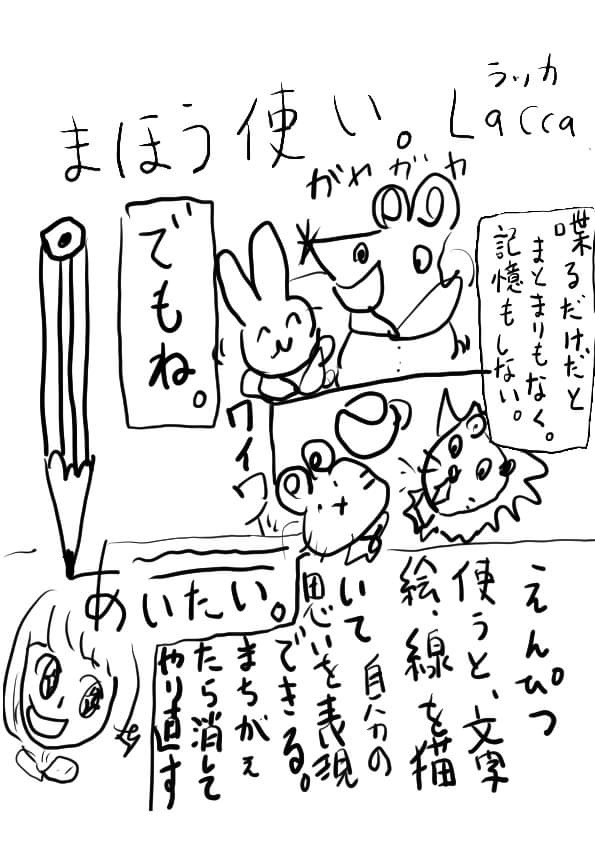 ラッカ
まほう使い。Lacca
ガヤガヤ
喋るだけだと
まとまりもなく。
記憶もしない。
でもね。
ワイワイ
えんぴつ
使うと、文字
絵・線を描
いて 自分の
思いを表現
できる。
まちがえ
たら消して
やり直す
あいたい。